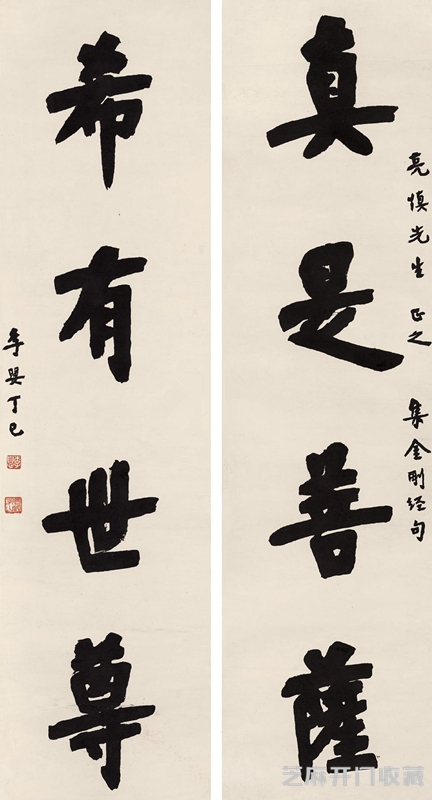 真是善薩
亮慎先生 正之 集金刚经句
希有世尊
李婴丁巳
芝麻开门收藏